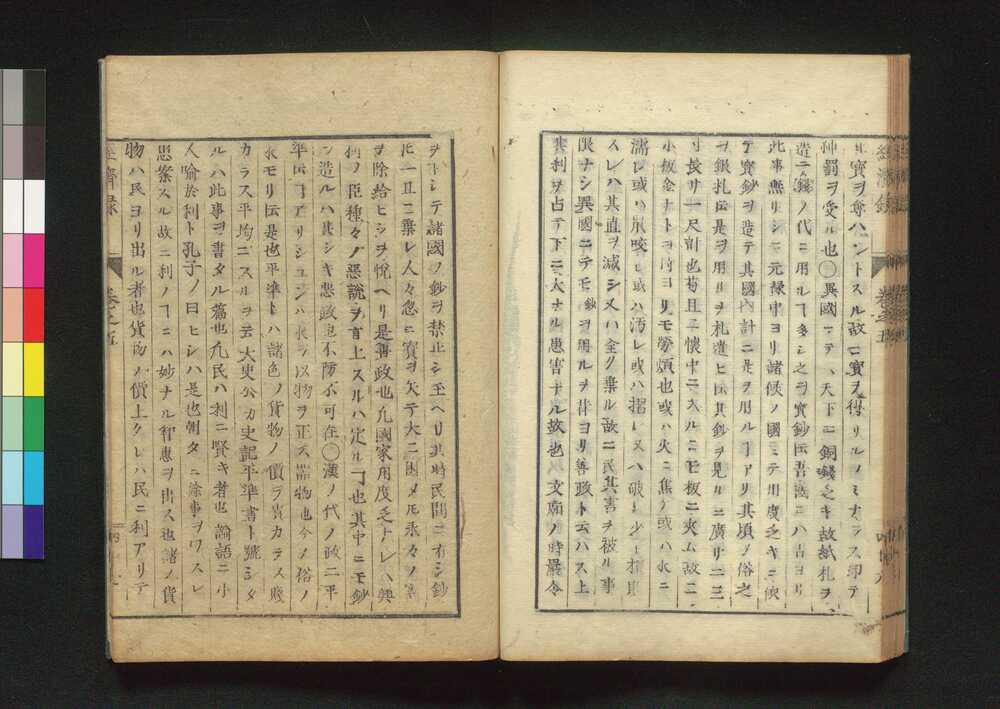 其寳ヲ奪ハントスル故ニ寳ヲ得リルノミナラス却テ
神罰ヲ受ル也〇異國ニテハ天下ニ銅錢乏キ故紙札ヲ
造ニ錢ノ代ニ用ルヿ多シ之ヲ寳鈔ト云吾國ニハ古ヨリ
此事無リシニ元禄中ヨリ諸候ノ國ニテ用度乏キニ
テ寳鈔ヲ造テ其國内計ニ是ヲ用ルヿアリ其頃ノ俗之
ヲ銀札ト云是ヲ用ルヲ札遣ヒト云其鈔ヲ見ルニ廣リ二三
寸長リ一尺計也苟且ニ懷中ニ入ルニモ板ニ夾ム故ニ
小板金ナトヨリモ勞煩也或ハ火ニ焦ケ或ハ水ニ
濡レ或ハ鼠咬ヒ或ハ汚レ或ハ摺レ又ハ破レ少シ損
スレハ其直ヲ減シ又ハ全ク棄ル故ニ民其害ヲ被ル事
限ナシ異國ニテモ鈔ヲ用ルヲ昔ヨリ善政ト云ハス上
其利ヲ占テ下ニ大ナル患害アル故也文廟ノ時嚴令
經濟録 卷之五
ヲ下シテ諸國ノ鈔ヲ禁止シ玉ヘリ其時民間ニ有シ鈔
ヒ一旦ニ棄レ人々忽ニ寳ヲ失テ大ニ困メ𪜈永々ノ害
ヲ除給ヒシヲ悅ヘリ是善政也凡國家用度乏ケレハ興
利ノ臣種々ノ惡說ヲ言上スルハ定ルヿ也其中ニモ鈔
ヲ造ルハ甚シキ惡政也不防不可在〇漢ノ代ノ政ニ平
準ト云ヿアリシュンハ水ヲ以物ヲ正ス器物也今ノ俗ノ
水モリト云是也平準トハ諸色ノ貨物ノ價ヲ貴カラス賤
カラス平均ニスルヲ云大史公カ史記平準書ト號シタ
ルハ此事ヲ書タル篇也凡民ハ利ニ賢キ者也論語ニ小
人喩於利ト孔子ノ曰ヒシハ是也朝タニ餘事ヲワスレ
思案スル故ニ利ノヿニハ妙ナル智惠ヲ出ス也諸ノ貨
物ハ民ヨリ出ル者也貨物ノ價上クレハ民ニ利アリテ
經濟録 卷之五